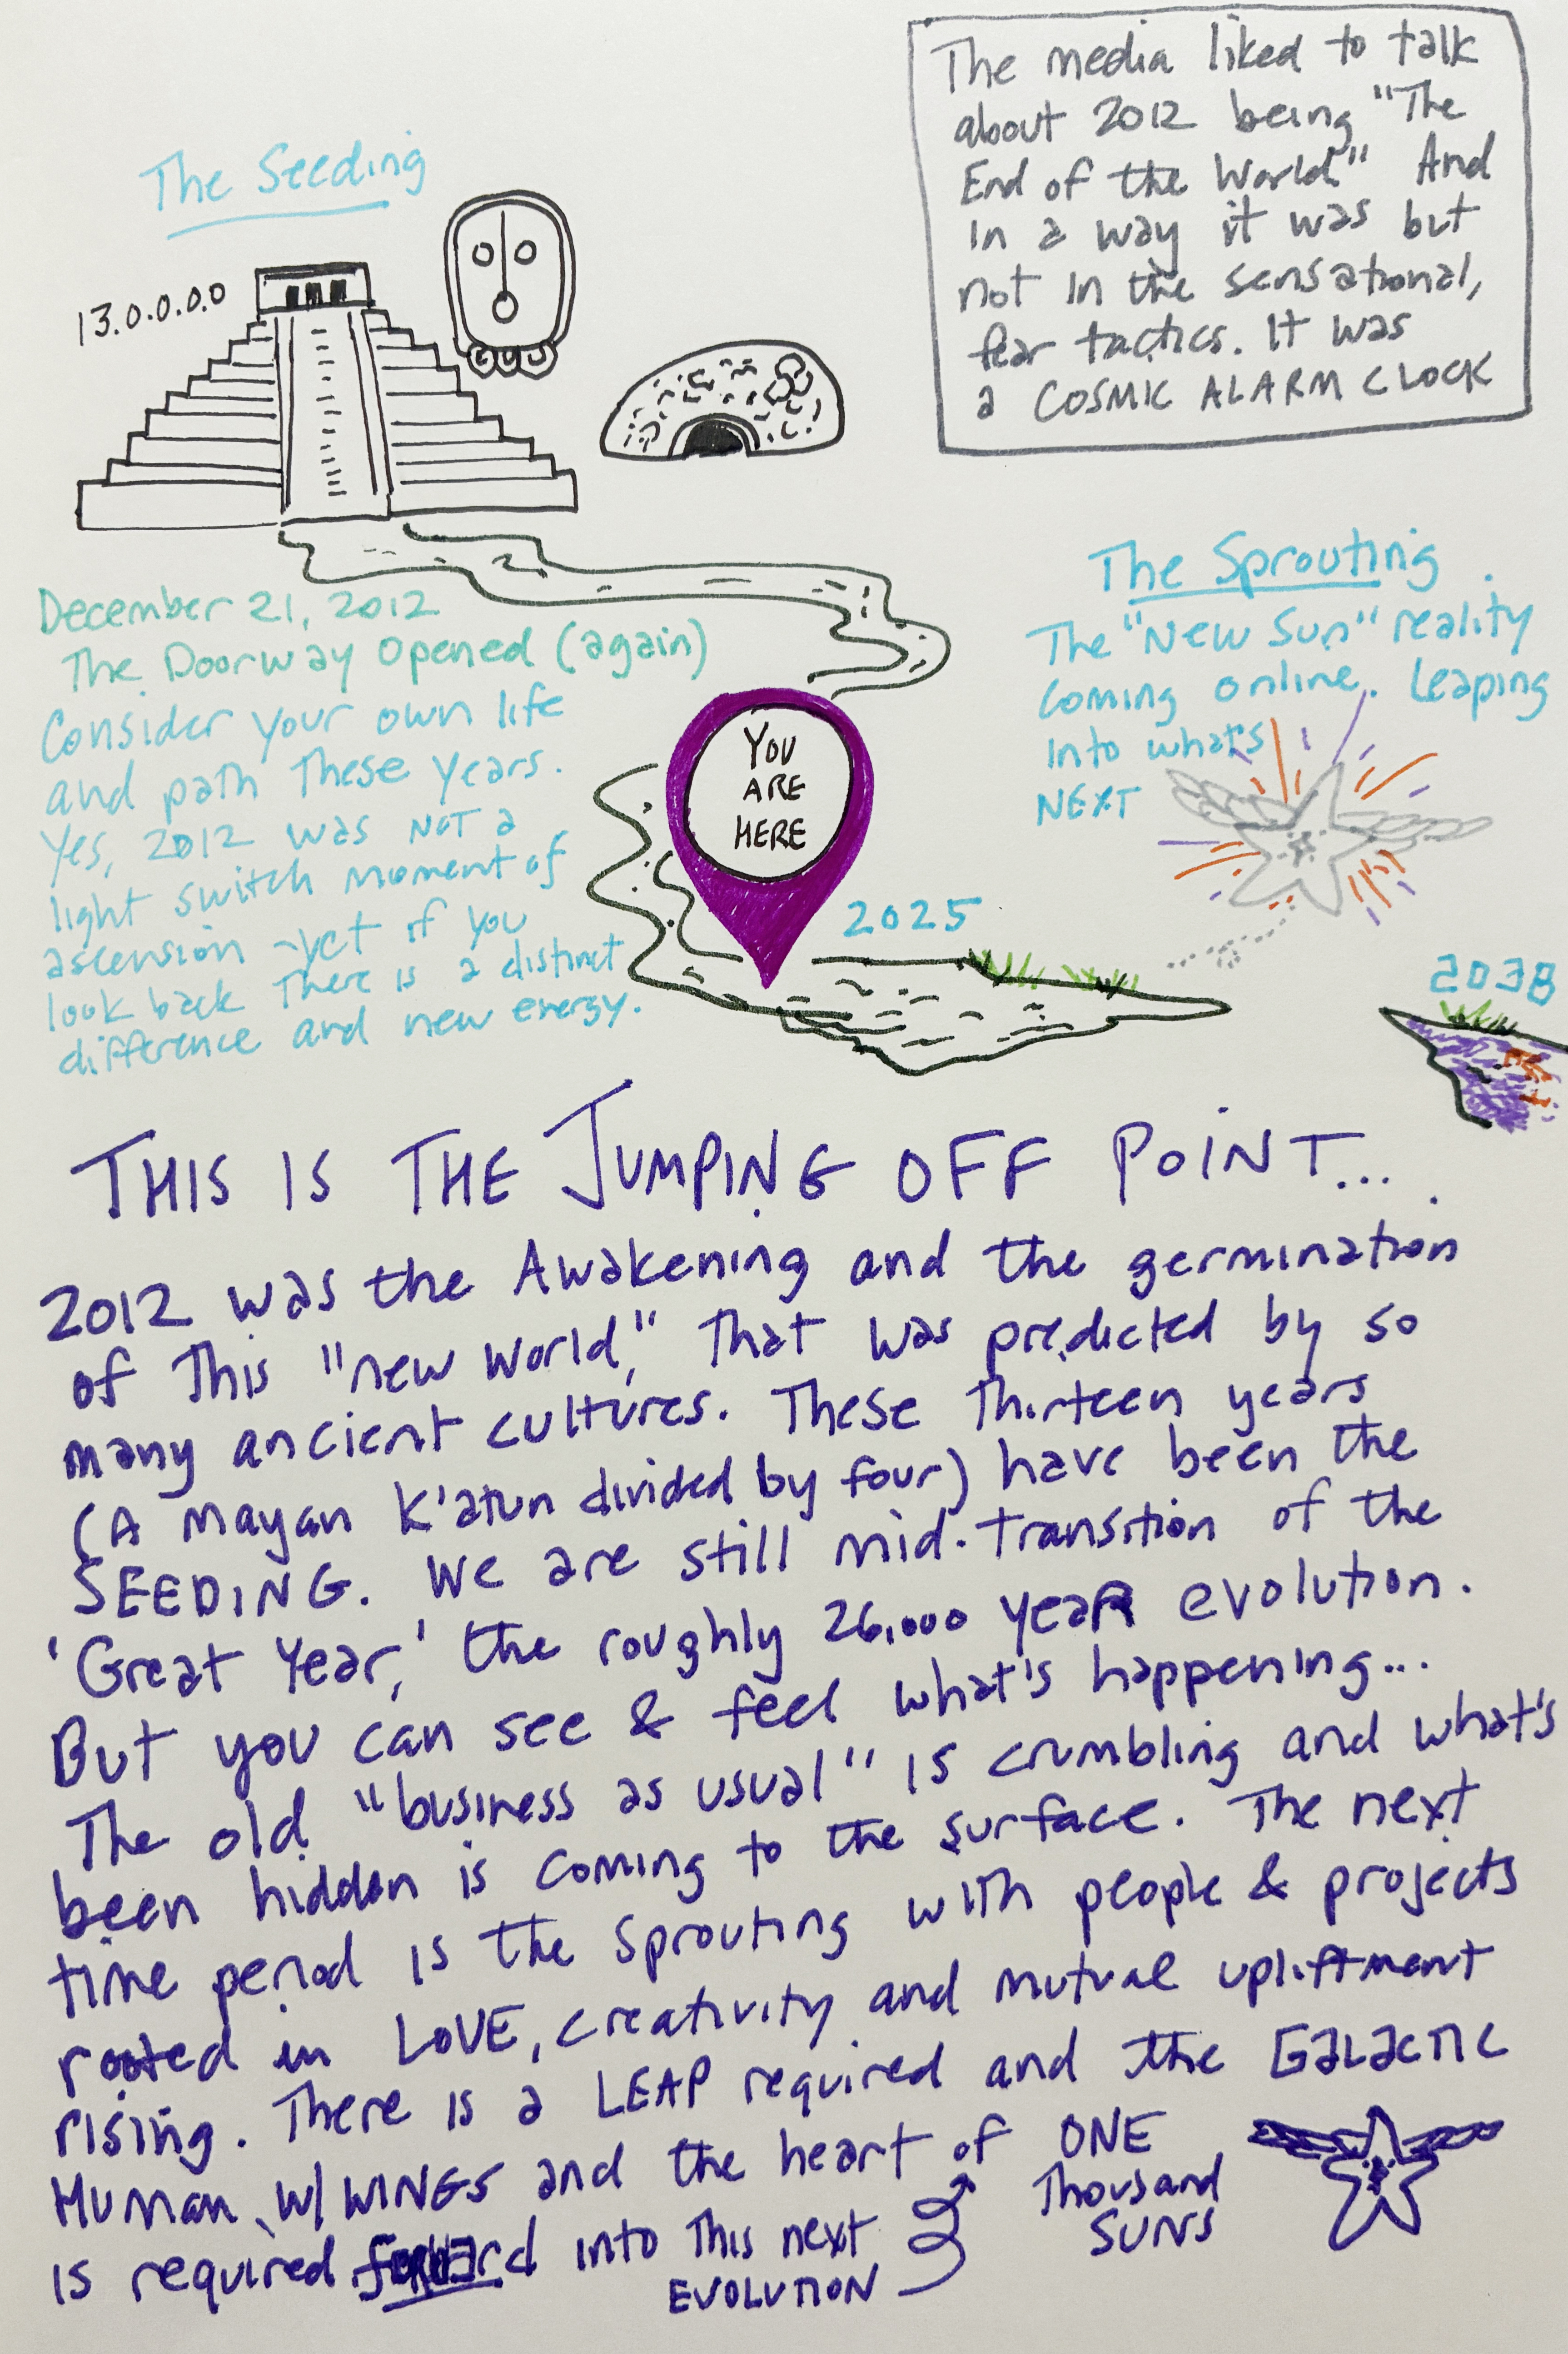 The Seeding
13.0.0.0.0
The media liked to talk
about 2012 being "The
End of the World." And
in a way it was but
not in the sensational,
fear tactics. It was
a COSMIC ALARM CLOCK
December 21, 2012
The Doorway Opened (again)
Consider your own life
and path These years.
Yes, 2012 was NOT a
light switch moment of
ascension - yet if you
look back There is a distinct
difference and new energy.
YOU
ARE
HERE
2025
The Sprouting
The "New Sun" reality
coming online. Leaping
Into what's
NEXT
2038
THIS IS THE JUMPING OFF POINT...
2012 was the Awakening and the germination
of This "new world," That was predicted by so
many ancient cultures. These Thirteen years
(A Mayan K'atun divided by four) have been the
SEEDING. We are still mid-transition of the
'Great Year,' the roughly 26,000 year evolution.
But you can see & feel what's happening...
The old "business as usual" is crumbling and what's
been hidden is coming to the surface. The next
time period is the Sprouting with people & projects
rooted in LOVE, creativity and mutual upliftment
rising. There is a LEAP required and the Galactic
Human w/ WINGS and the heart of ONE
Thousand
SUNS
is required forward into This next
EVOLUTION